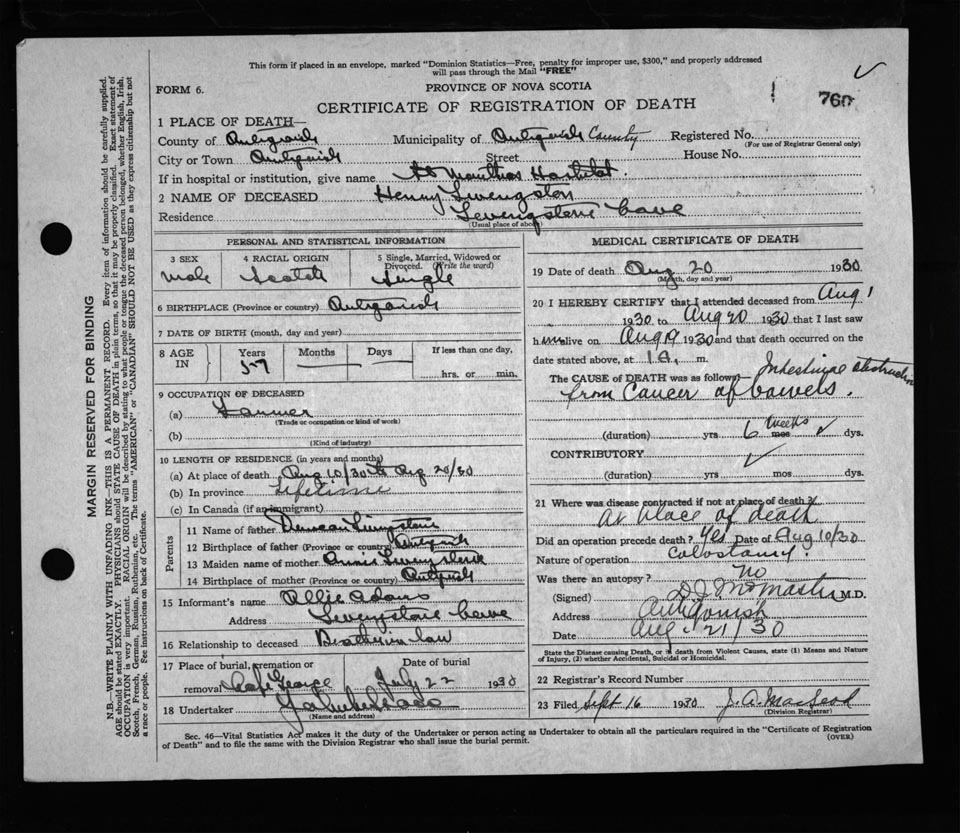 This form if placed in an envelope, marked "Dominion Statistics—Free, penalty for improper use, $300," and properly addressed
will pass through the Mail "FREE"
FORM 6.
PROVINCE OF NOVA SCOTIA
760
CERTIFICATE OF REGISTRATION OF DEATH
1 PLACE OF DEATH—
County of Antigonish Municipality of Antigonish County Registered No.
(For use of Registrar General only)
City or Town Antigonish Street House No.
If in hospital or institution, give name St Marthas Hospital.
2 NAME OF DECEASED Henry Livingston
Residence Levingstone Cove
(Usual place of abode)
MARGIN RESERVED FOR BINDING
N.B.—WRITE PLAINLY WITH UNFADING INK—THIS IS A PERMANENT RECORD. Every item of information should be carefully supplied.
AGE should be stated EXACTLY. PHYSICIANS should STATE CAUSE OF DEATH in plain terms, so that it may be properly classified. Exact statement of
OCCUPATION is very important. RACIAL ORIGIN will be described by stating to what people or tongue the deceased person belonged, whether English, Irish,
Scotch, French, German, Russian, Ruthenian, etc. The terms "AMERICAN" or "CANADIAN" SHOULD NOT BE USED as they express citizenship but not
a race or people. See instructions on back of Certificate.
PERSONAL AND STATISTICAL INFORMATION
3 SEX
male
4 RACIAL ORIGIN
Scotch
5 Single, Married, Widowed or
Divorced. (Write the word)
Single
6 BIRTHPLACE (Province or country) Antigonish
7 DATE OF BIRTH (month, day and year)
8 AGE
IN
Years
57
Months
Days
If less than one day,
hrs. or min.
9 OCCUPATION OF DECEASED
(a) Farmer
(Trade or occupation or kind of work)
(b)
(Kind of industry)
10 LENGTH OF RESIDENCE (in years and months)
(a) At place of death Aug 10/30 to Aug 20/30
(b) In province Lifetime
(c) In Canada (if an immigrant)
Parents
11 Name of father Duncan Livingstone
12 Birthplace of father (Province or country) Antigonish
13 Maiden name of mother Annie Livingstone
14 Birthplace of mother (Province or country) Antigonish
15 Informant's name Allie Adams
Address Levingstone Cove
16 Relationship to deceased Brother in law
17 Place of burial, cremation or
removal Cape George
Date of burial
July 22 1930
18 Undertaker
(Name and address)
MEDICAL CERTIFICATE OF DEATH
19 Date of death Aug 20 1930
(Month, day and year)
20 I HEREBY CERTIFY that I attended deceased from Aug 1
1930 to Aug 20 1930 that I last saw
him alive on Aug 19 1930 and that death occurred on the
date stated above, at 1 A. m.
The CAUSE of DEATH was as follows— Intestinal obstruction
from Cancer of bowels.
(duration) yrs 6 weeks mos dys.
CONTRIBUTORY
(duration) yrs mos dys.
21 Where was disease contracted if not at place of death?
At place of death
Did an operation precede death? Yes Date of Aug 10/30
Nature of operation Colostomy
Was there an autopsy? No
(Signed) D J McMaster M.D.
Address Antigonish
Date Aug. 21/30
State the Disease causing Death, or in death from Violent Causes, state (1) Means and Nature
of Injury, (2) whether Accidental, Suicidal or Homicidal.
22 Registrar's Record Number
23 Filed Sept 16 1930 J. A. MacLeod
(Division Registrar)
Sec. 46—Vital Statistics Act makes it the duty of the Undertaker or person acting as Undertaker to obtain all the particulars required in the "Certificate of Registration
of Death" and to file the same with the Division Registrar who shall issue the burial permit.
(OVER)